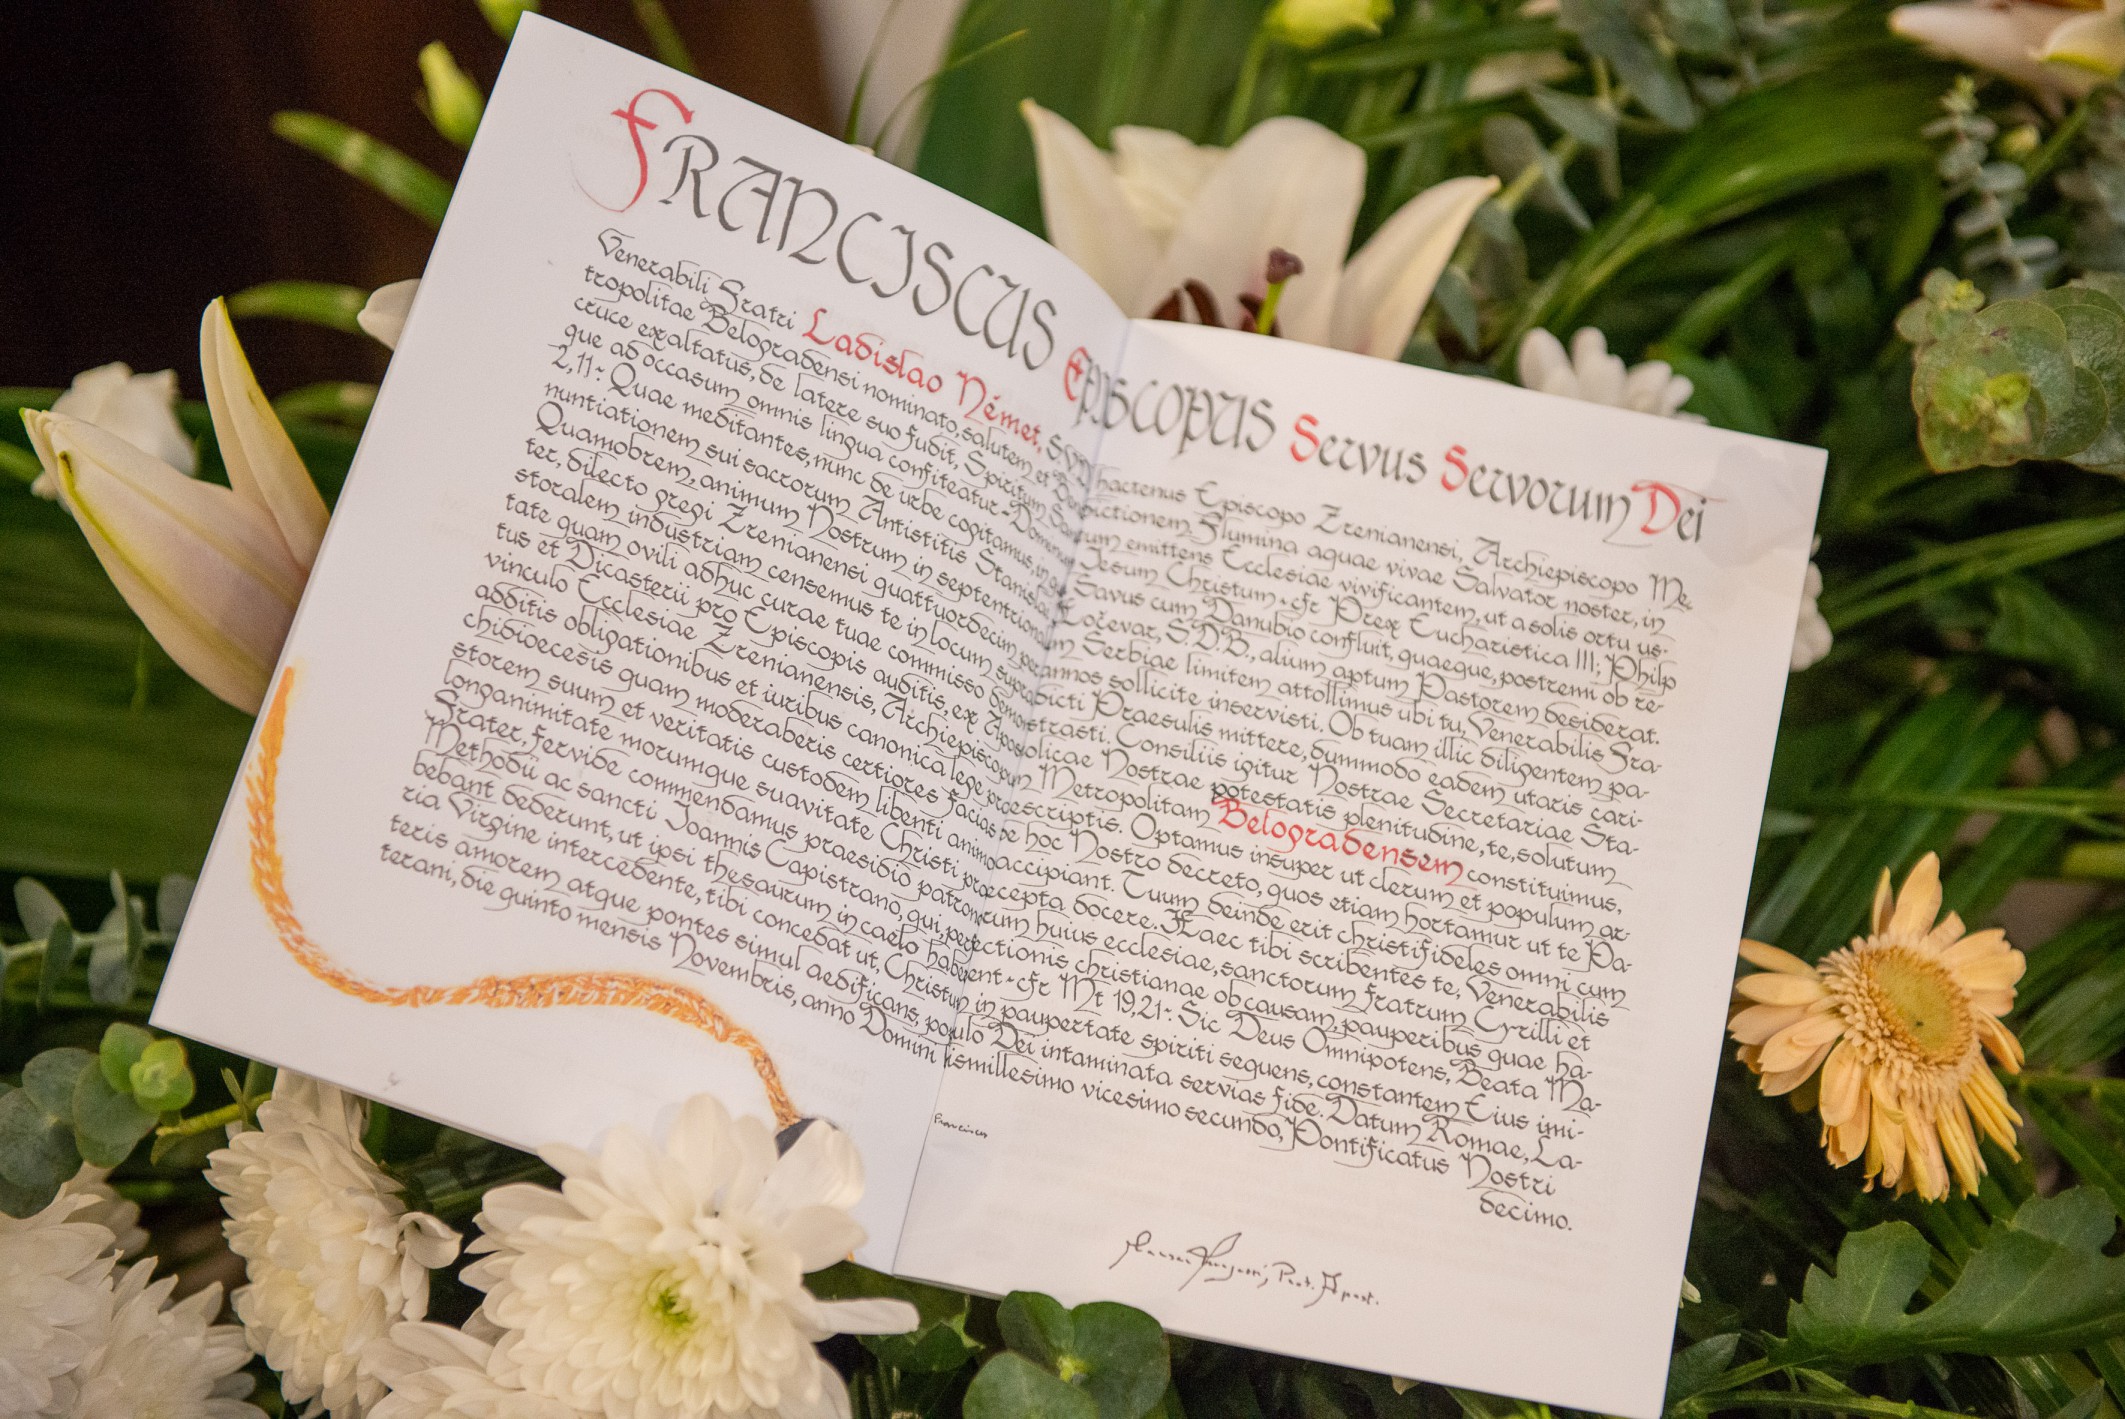 FRANCISCUS EPISCOPUS Servus Servorum Dei
Venerabili Fratri Ladislao Német, S.V.D. hactenus Episcopo Zrenianensi, Archiepiscopo Me-
tropolitae Belogradensi nominato, salutem et Benedictionem. Flumina aquae vivae Salvator noster, in
cruce exaltatus, de latere suo fudit, Spiritum Sanctum emittens Ecclesiae vivificantem, ut a solis ortu us-
que ad occasum omnis lingua confiteatur Dominum Iesum Christum - cfr Prex Eucharistica III; Philp
2,11-. Quae meditantes, nunc de urbe cogitamus, in qua Savus cum Danubio confluit, quaeque, postremi ob re-
nuntiationem sui sacrorum Antistitis Stanislai Hočevar, S.D.B., alium aptum Pastorem desiderat.
Quamobrem, animum Nostrum in septentrionalem Serbiae limitem attollimus ubi tu, Venerabilis Fra-
ter, dilecto gregi Zrenianensi quattuordecim per annos sollicite inservisti. Ob tuam illic diligentem pa-
storalem industriam censemus te in locum supradicti Praesulis mittere, dummodo eadem utaris cari-
tate quam ovili adhuc curae tuae commisso demonstrasti. Consiliis igitur Nostrae Secretariae Sta-
tus et Dicasterii pro Episcopis auditis, ex Apostolicae Nostrae potestatis plenitudine, te, solutum
vinculo Ecclesiae Zrenianensis, Archiepiscopum Metropolitam Belogradensem constituimus,
additis obligationibus et iuribus canonica lege praescriptis. Optamus insuper ut clerum et populum ar-
chidioecesis quam moderaberis certiores facias de hoc Nostro decreto, quos etiam hortamur ut te Pa-
storem suum et veritatis custodem libenti animo accipiant. Tuum deinde erit christifideles omni cum
longanimitate morumque suavitate Christi praecepta docere. Haec tibi scribentes te, Venerabilis
Frater, fervide commendamus praesidio patronorum huius ecclesiae, sanctorum fratrum Cyrilli et
Methodii ac sancti Ioannis Capistrano, qui, perfectionis christianae ob causam, pauperibus quae ha-
bebant dederunt, ut ipsi thesaurum in caelo haberent - cfr Mt 19,21-. Sic Deus Omnipotens, Beata Ma-
ria Virgine intercedente, tibi concedat ut, Christum in paupertate spiriti sequens, constantem Eius imi-
teris amorem atque pontes simul aedificans, populo Dei intaminata servias fide. Datum Romae, La-
terani, die quinto mensis Novembris, anno Domini bismillesimo vicesimo secundo, Pontificatus Nostri
decimo.
Franciscus
Prot. Apost.